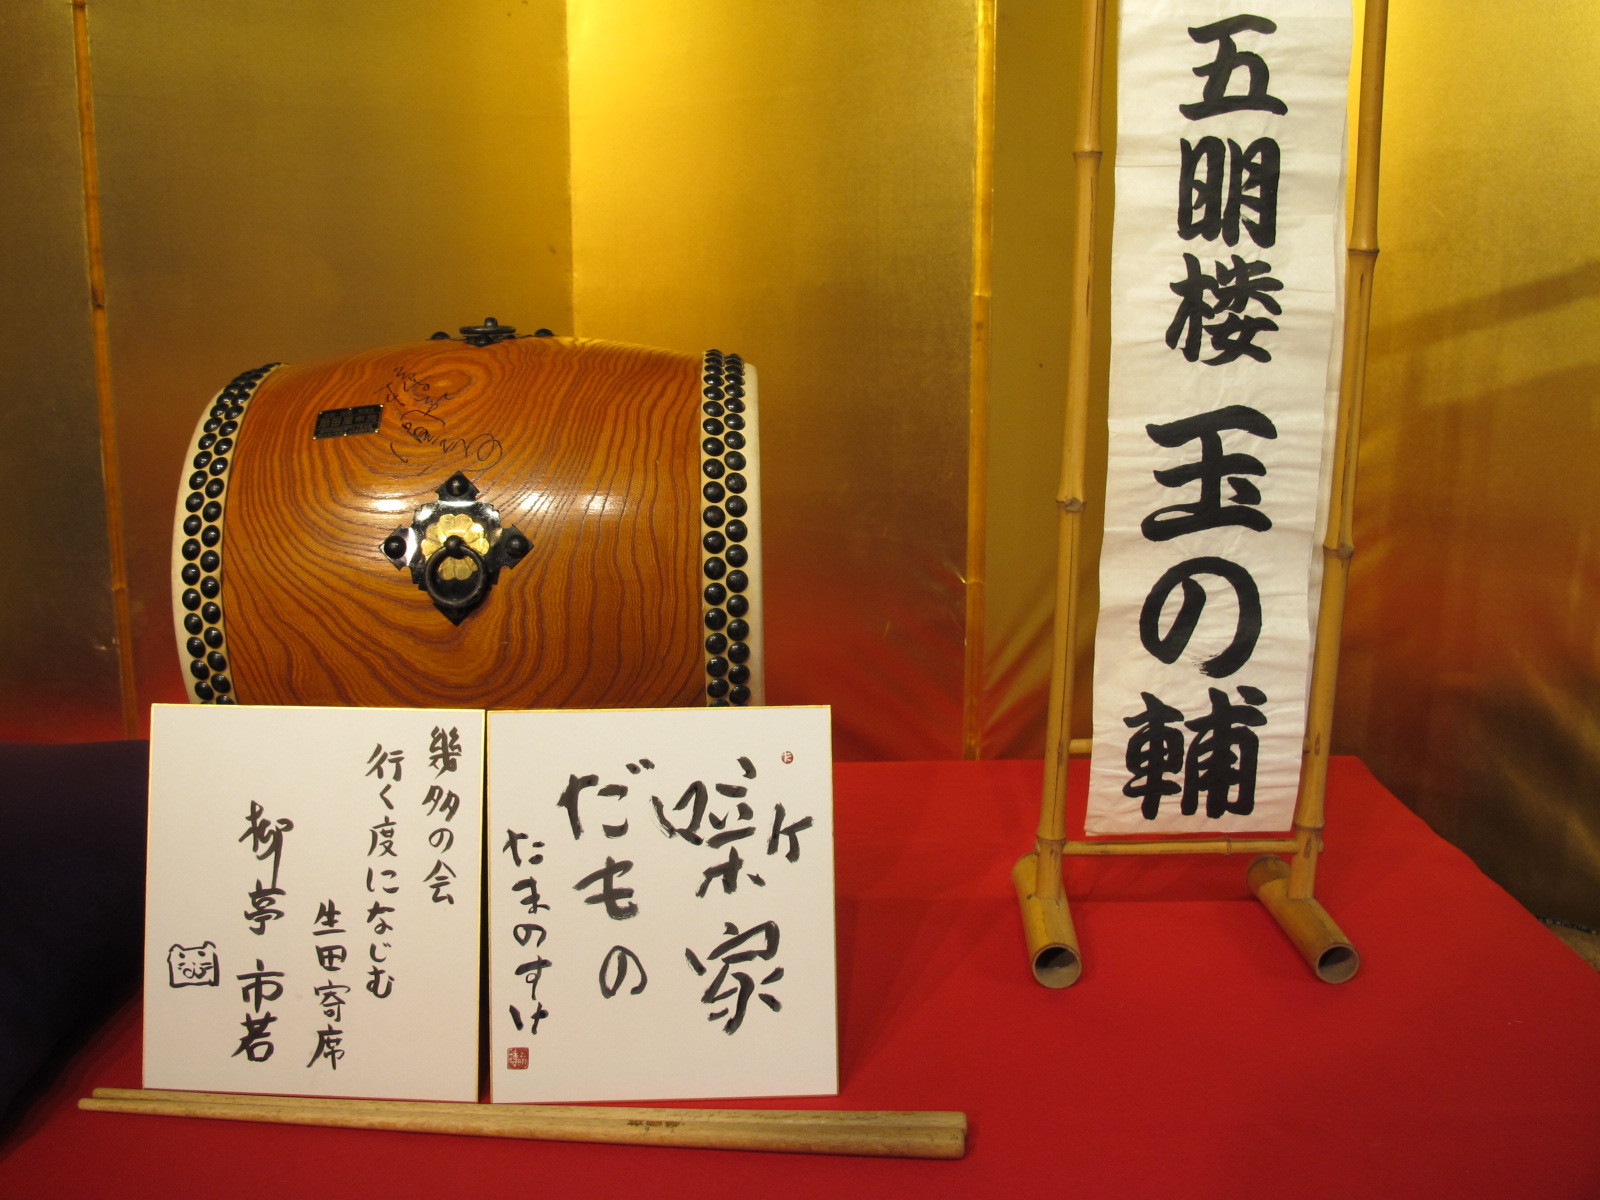 五明楼 玉の輔
噺家
だもの
たまのすけ
幾多の会
行く度になじむ
生田寄席
柳亭 市若